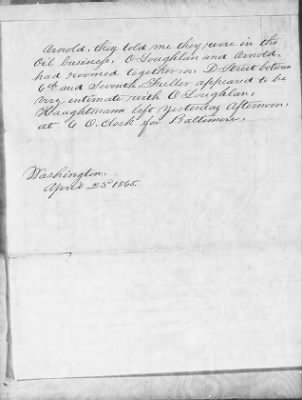 Arnold, they told me they were in the
Oil business, O'Loughlan and Arnold,
had roomed together on D Street between
6th and Seventh, Fuller appeared to be
very intimate with O'Loughlan,
Haughtmann left yesterday Afternoon,
at 6 O.Clock for Baltimore,
Washington,
April 23d 1865.